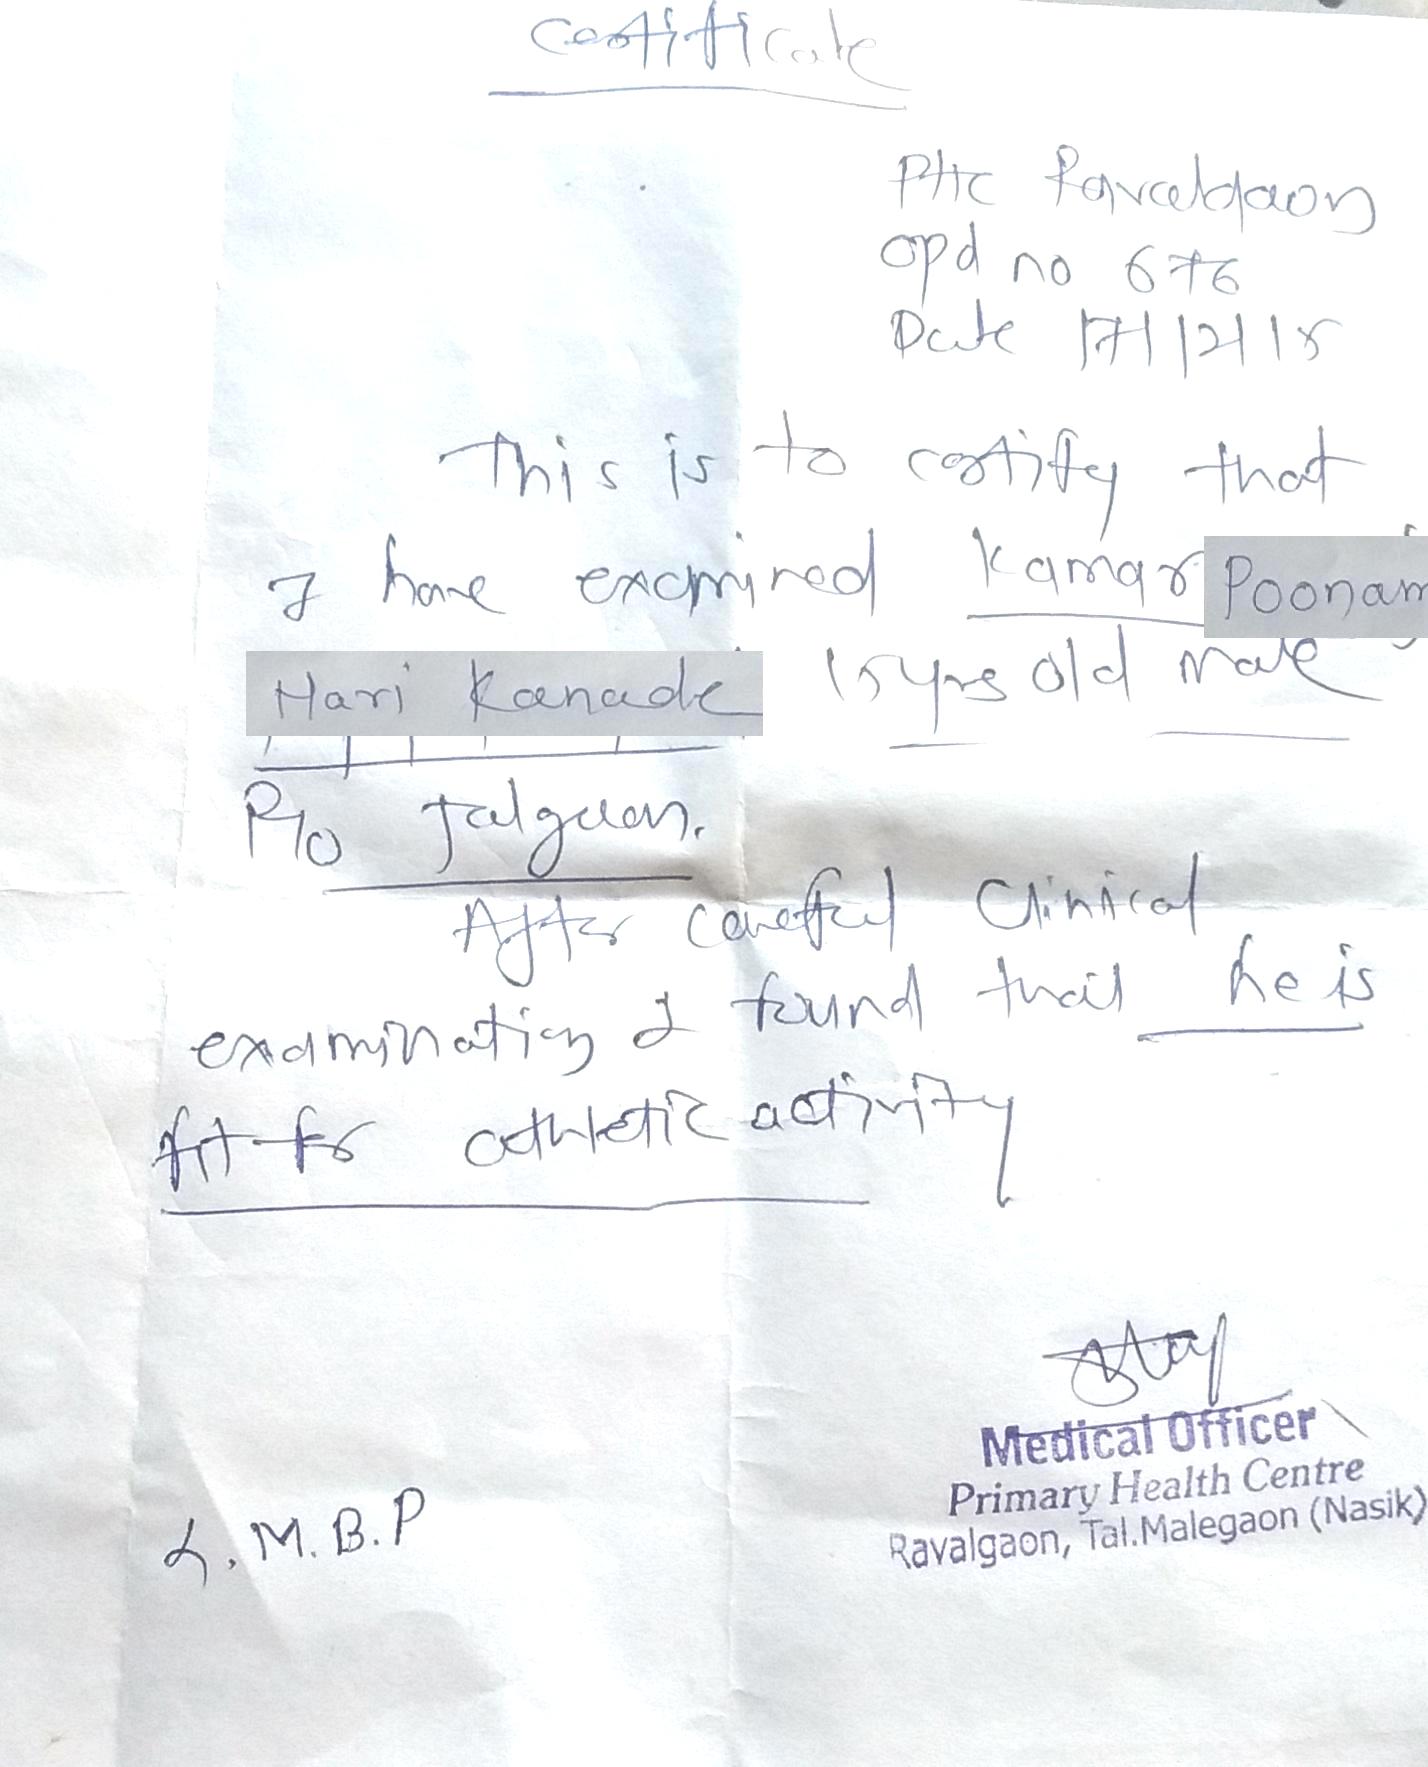 Certificate
PHC Ravalgaon
opd no 676
Date 17/12/18
This is to certify that
I have examined Kamar Poonam
Hari Kanade 15yrs old Male
R/o Jalgaon.
After careful Clinical
examination I found that he is
fit for athletic activity
Medical Officer
Primary Health Centre
Ravalgaon, Tal.Malegaon (Nasik)
L.M.B.P